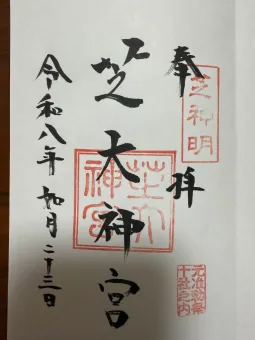 奉拝
芝神明
芝大神宮
芝大神宮
元准勅祭十社之内
令和八年如月二十三日